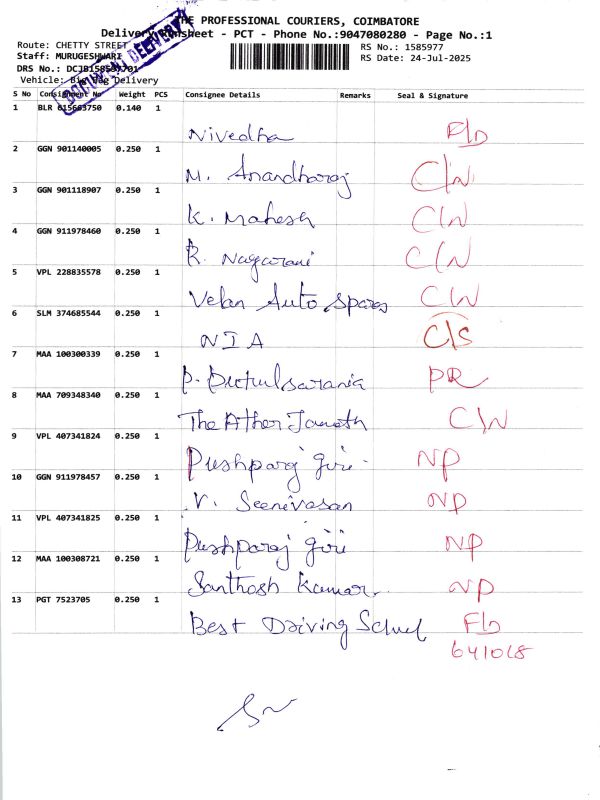 THE PROFESSIONAL COURIERS, COIMBATORE
Delivery Runsheet - PCT - Phone No.:9047080280 - Page No.:1
Route: CHETTY STREET
RS No.: 1585977
Staff: MURUGESHWARI
RS Date: 24-Jul-2025
DRS No.:
Vehicle: Big Bag Delivery
S No Consignment No Weight PCS Consignee Details Remarks Seal & Signature
1 BLR 615663750 0.140 1
Nivedha
2 GGN 901140005 0.250 1
M. Anandharaj C/N
3 GGN 901118907 0.250 1
K. Mahesh C/N
4 GGN 911978460 0.250 1
R. Nagarani C/N
5 VPL 228835578 0.250 1
Velan Auto Spares C/N
6 SLM 374685544 0.250 1
NIA C/S
7 MAA 100300339 0.250 1
P. PR
8 MAA 709348340 0.250 1
The Ather C/N
9 VPL 407341824 0.250 1
Pushparaj giri NP
10 GGN 911978457 0.250 1
V. Seenivasan NP
11 VPL 407341825 0.250 1
Pushparaj giri NP
12 MAA 100308721 0.250 1
Santhosh Kumar. NP
13 PGT 7523705 0.250 1
Best Driving School
641018